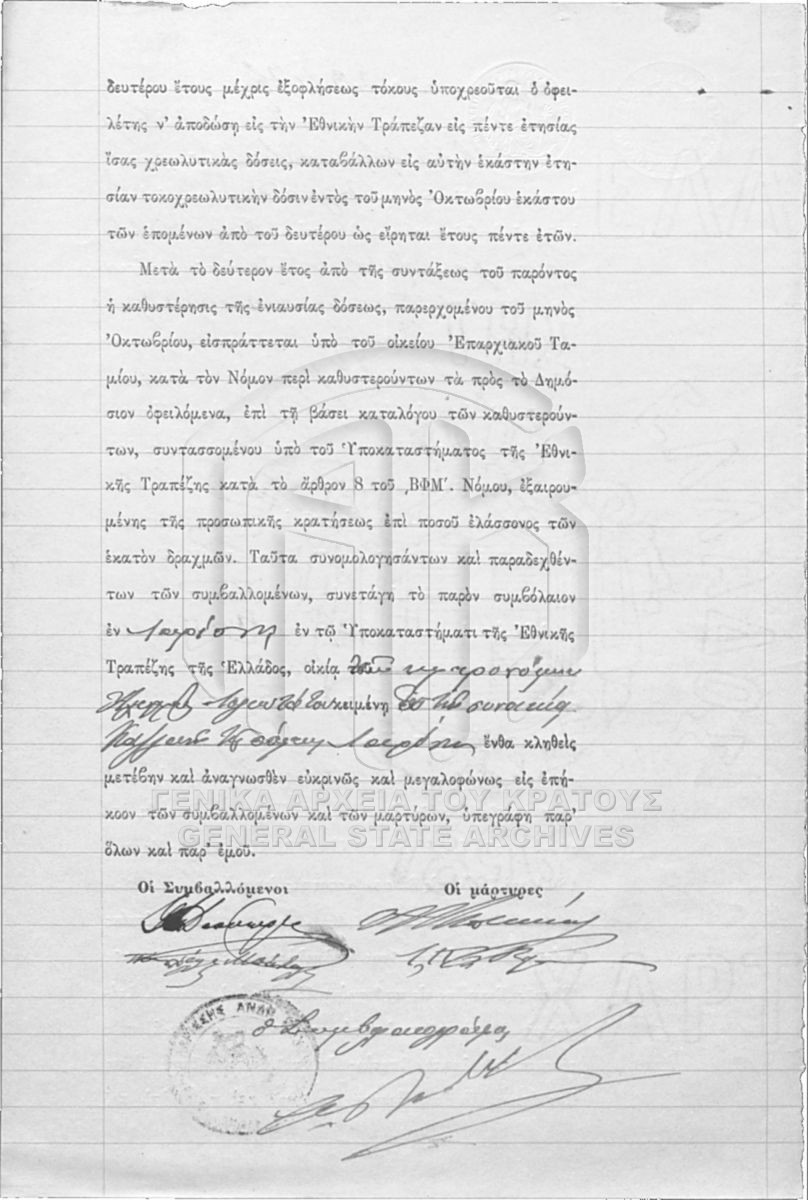 δευτέρου ἔτους μέχρις ἐξοφλήσεως τόκους ὑποχρεοῦται ὁ ὀφει-
λέτης ν' ἀποδώσῃ εἰς τὴν Ἐθνικὴν Τράπεζαν εἰς πέντε ἐτησίας
ἴσας χρεωλυτικὰς δόσεις, καταβάλλων εἰς αὐτὴν ἑκάστην ἐτη-
σίαν τοκοχρεωλυτικὴν δόσιν ἐντὸς τοῦ μηνὸς Ὀκτωβρίου ἑκάστου
τῶν ἑπομένων ἀπὸ τοῦ δευτέρου ὡς εἴρηται ἔτους πέντε ἐτῶν.
Μετὰ τὸ δεύτερον ἔτος ἀπὸ τῆς συντάξεως τοῦ παρόντος
ἡ καθυστέρησις τῆς ἐνιαυσίας δόσεως, παρερχομένου τοῦ μηνὸς
Ὀκτωβρίου, εἰσπράττεται ὑπὸ τοῦ οἰκείου Ἐπαρχιακοῦ Τα-
μίου, κατὰ τὸν Νόμον περὶ καθυστερούντων τὰ πρὸς τὸ Δημό-
σιον ὀφειλόμενα, ἐπὶ τῇ βάσει καταλόγου τῶν καθυστερούν-
των, συντασσομένου ὑπὸ τοῦ Ὑποκαταστήματος τῆς Ἐθνι-
κῆς Τραπέζης κατὰ τὸ ἄρθρον 8 τοῦ ͵ΒΦΜ΄. Νόμου, ἐξαιρου-
μένης τῆς προσωπικῆς κρατήσεως ἐπὶ ποσοῦ ἐλάσσονος τῶν
ἑκατὸν δραχμῶν. Ταῦτα συνομολογησάντων καὶ παραδεχθέν-
των τῶν συμβαλλομένων, συνετάγη τὸ παρὸν συμβόλαιον
ἐν Λαρίσῃ ἐν τῷ Ὑποκαταστήματι τῆς Ἐθνικῆς
Τραπέζης τῆς Ἑλλάδος, οἰκίᾳ τῶν κληρονόμων
κειμένῃ συνοικίᾳ
Λαρίσης ἔνθα κληθεὶς
μετέβην καὶ ἀναγνωσθὲν εὐκρινῶς καὶ μεγαλοφώνως εἰς ἐπή-
κοον τῶν συμβαλλομένων καὶ τῶν μαρτύρων, ὑπεγράφη παρ'
ὅλων καὶ παρ' ἐμοῦ.
ΓΕΝΙΚΑ ΑΡΧΕΙΑ ΤΟΥ ΚΡΑΤΟΥΣ
GENERAL STATE ARCHIVES
Οἱ Συμβαλλόμενοι Οἱ μάρτυρες
ὁ Συμβολαιογράφος